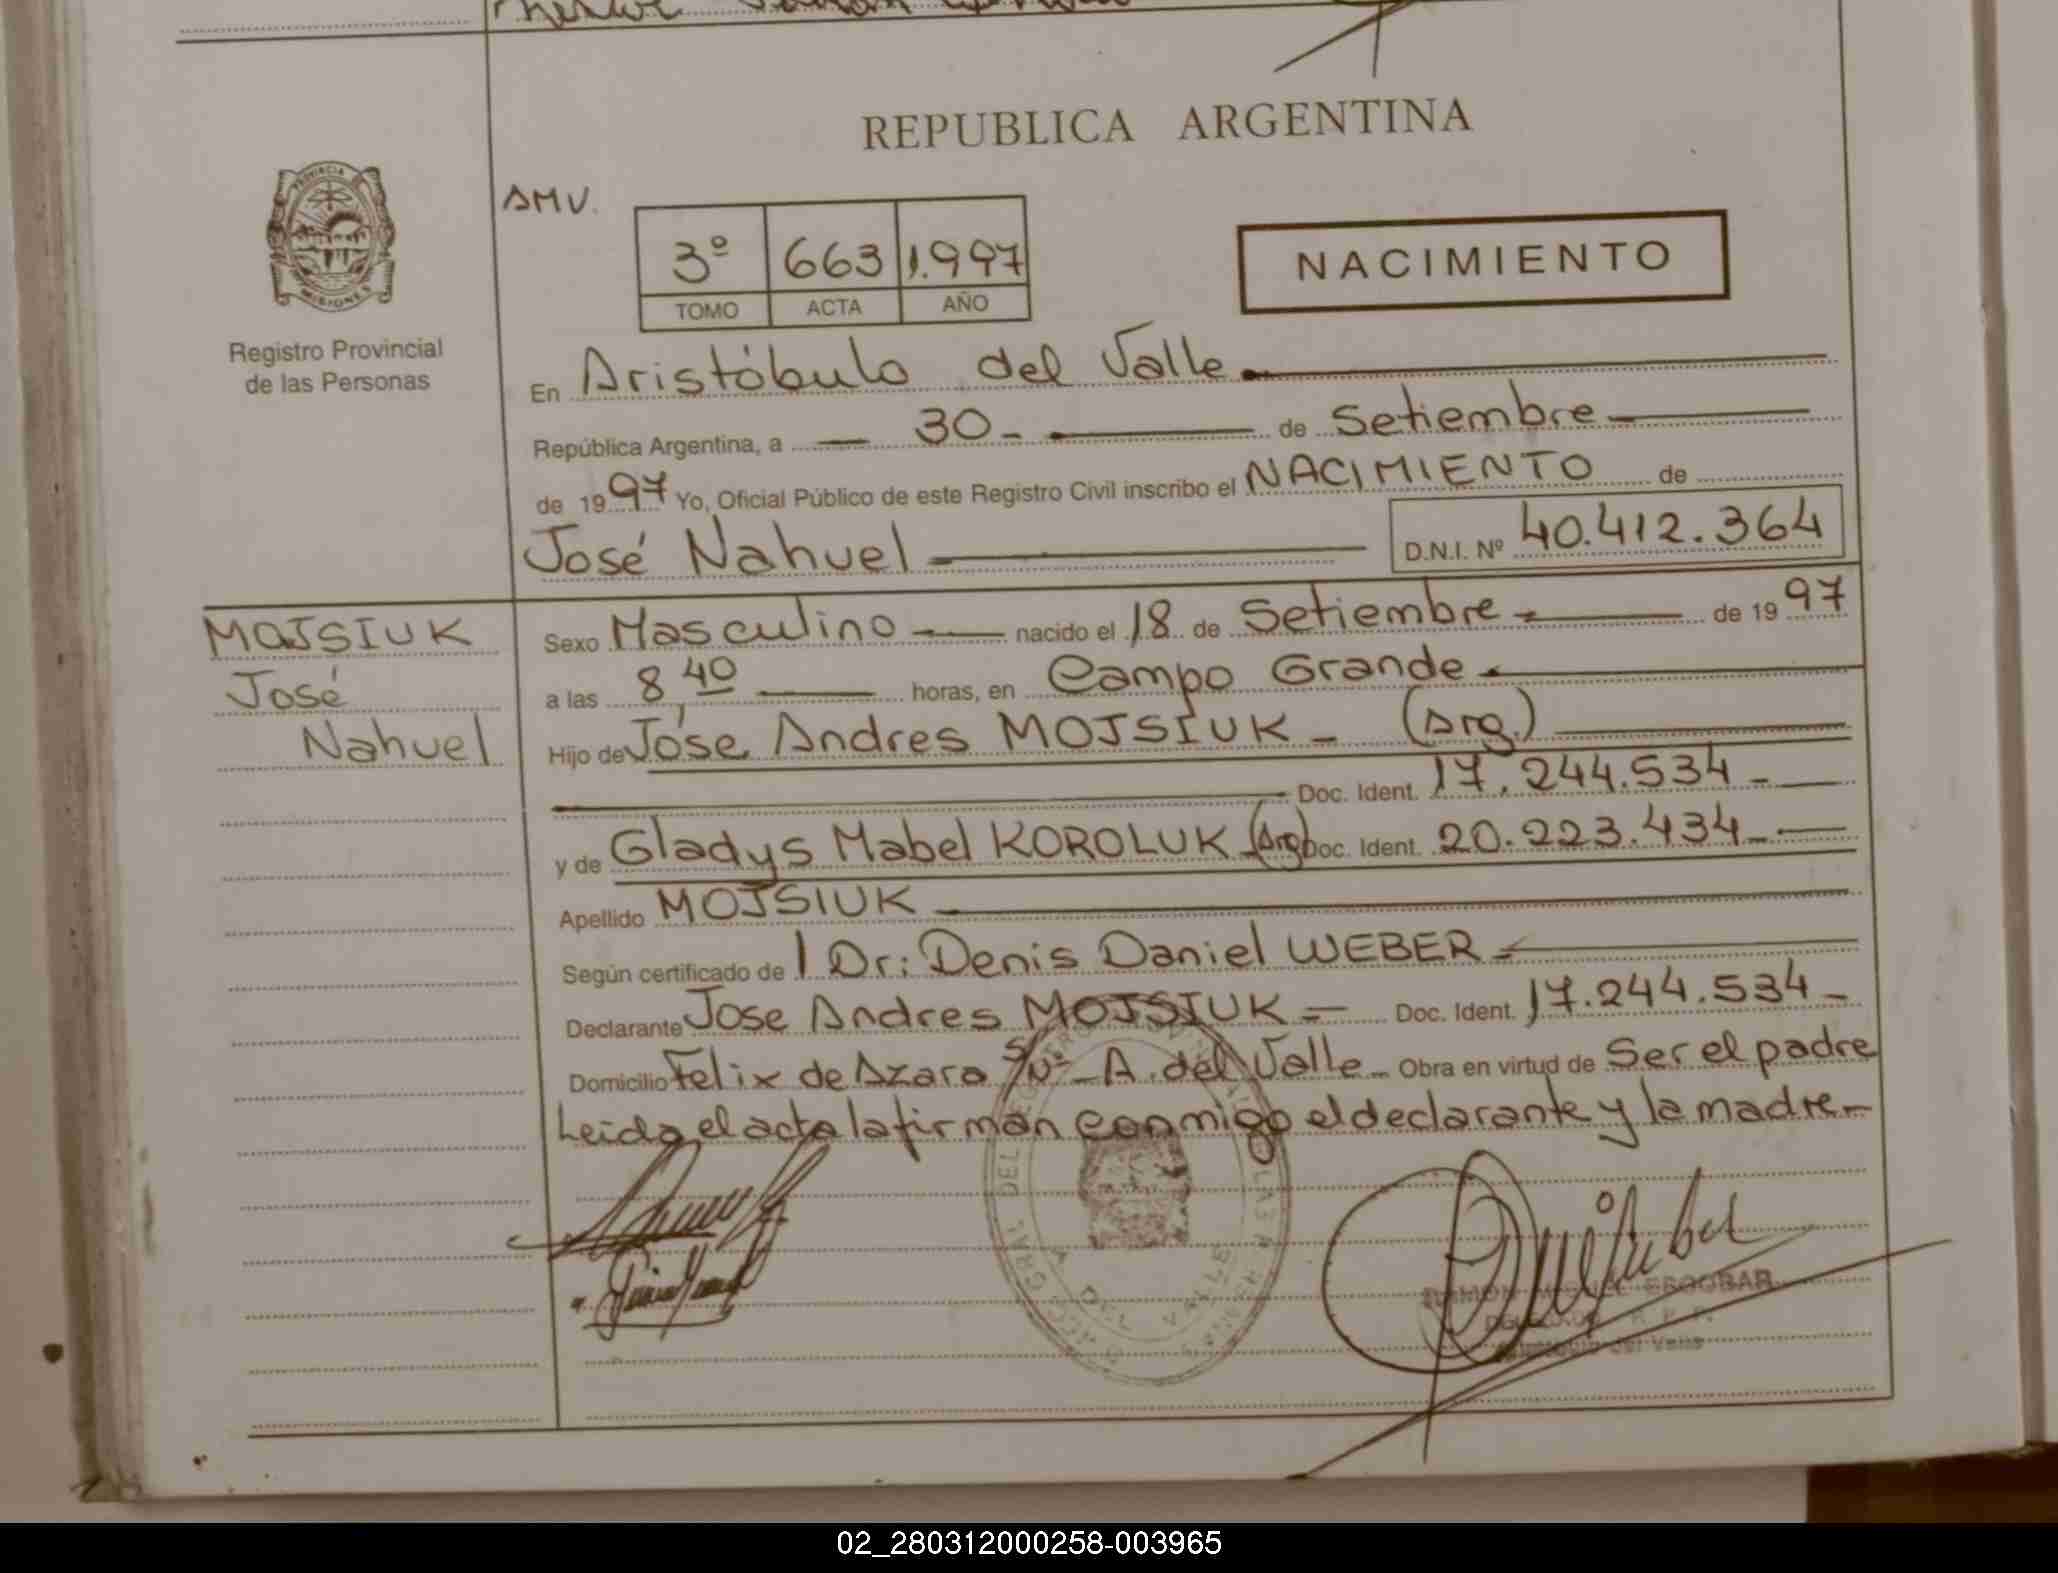 REPUBLICA ARGENTINA
PROVINCIA
MISIONES
Registro Provincial
de las Personas
AMV.
3º 663 1.997
TOMO ACTA AÑO
NACIMIENTO
En Aristóbulo del Valle
República Argentina, a 30 de Setiembre
de 1997 Yo, Oficial Público de este Registro Civil inscribo el NACIMIENTO de
José Nahuel D.N.I. Nº 40.412.364
MOJSIUK
José
Nahuel
Sexo Masculino nacido el 18 de Setiembre de 1997
a las 8,40 horas, en Campo Grande
Hijo de Jóse Andres MOJSIUK - (Arg.)
Doc. Ident. 17.244.534
y de Gladys Mabel KOROLUK (Arg) Doc. Ident. 20.223.434
Apellido MOJSIUK
Según certificado de l Dr: Denis Daniel WEBER
Declarante Jose Andres MOJSIUK Doc. Ident. 17.244.534
Domicilio Felix de Azara S/Nº - A. del Valle Obra en virtud de Ser el padre
Leida el acta la firman conmigo el declarante y la madre
A DEL VALLE
RAMON MIGUEL ESCOBAR
R. P. P.
Aristobulo del Valle
02_280312000258-003965